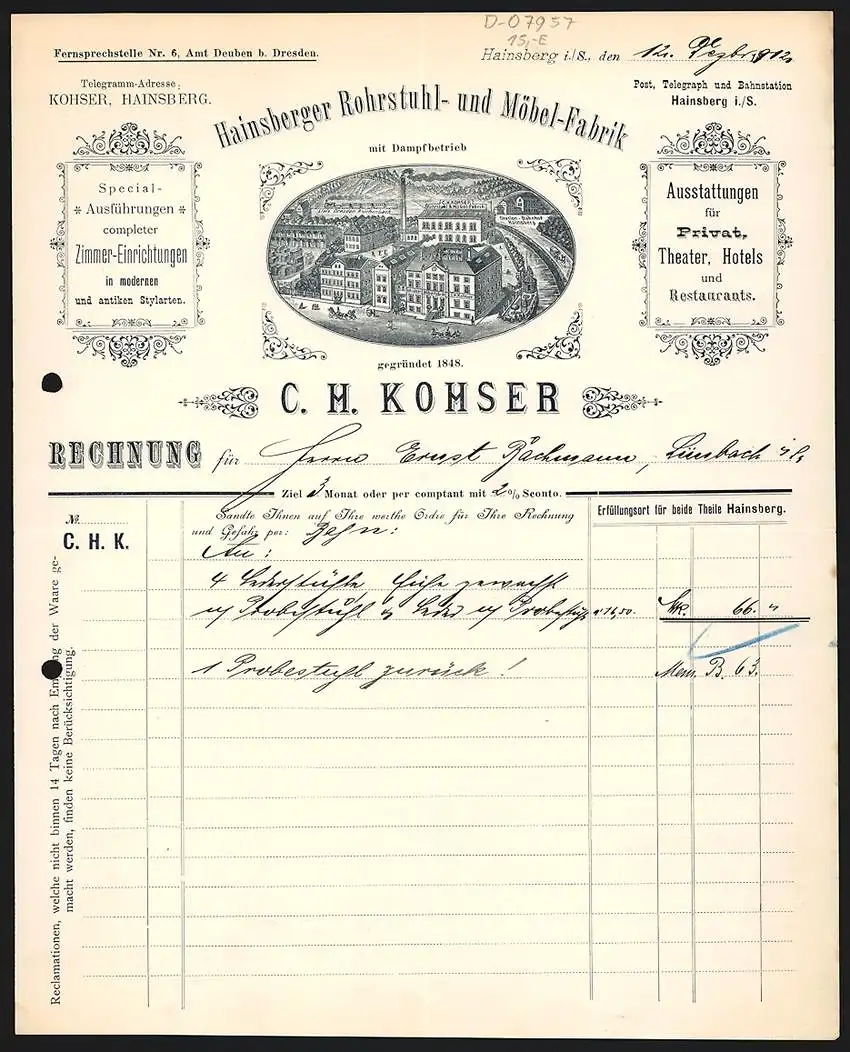 D-07957
15,-E
Fernsprechstelle Nr. 6, Amt Deuben b. Dresden.
Hainsberg i./S., den 12. Dezbr. 1912
Telegramm-Adresse:
KOHSER, HAINSBERG.
Post, Telegraph und Bahnstation
Hainsberg i./S.
Hainsberger Rohrstuhl- und Möbel-Fabrik
mit Dampfbetrieb
Special-
Ausführungen
completer
Zimmer-Einrichtungen
in modernen
und antiken Stylarten.
C.H. KOHSER
Station-Bahnhof
Hainsberg
Ausstattungen
für
Privat,
Theater, Hotels
und
Restaurants.
gegründet 1848.
C. H. KOHSER
RECHNUNG für Herrn Ernst Bachmann, Limbach i/S.
Ziel 3 Monat oder per comptant mit 2% Sconto.
Erfüllungsort für beide Theile Hainsberg.
№
C. H. K.
Sandte Ihnen auf Ihre werthe Ordre für Ihre Rechnung
und Gefahr per: Bahn:
An:
4 Lederstühle Eiche gewachst
w/ Probestuhl Leder w/ Probestuhl a 16,50. Mk. 66. "
1 Probestuhl zurück! Mem. B. 63.
Reclamationen, welche nicht binnen 14 Tagen nach Empfang der Waare ge-
macht werden, finden keine Berücksichtigung.